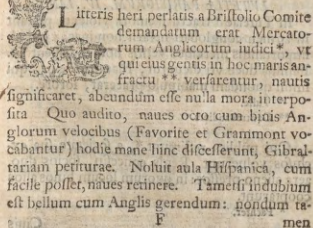 Litteris heri perlatis a Bristolio Comite
demandatum erat Mercato-
rum Anglicorum iudici*, vt
qui eius gentis in hoc maris an-
fractu ** versarentur, nautis
significaret, abeundum esse nulla mora interpo-
sita Quo audito, naues octo cum binis An-
glorum velocibus (Favorite et Grammont vo-
cabantur) hodie mane hinc discesserunt, Gibral-
tariam petiturae. Noluit aula Hispanica, cum
facile posset, naues retinere. Tametsi indubium
est bellum cum Anglis gerendum: nondum ta-
F men